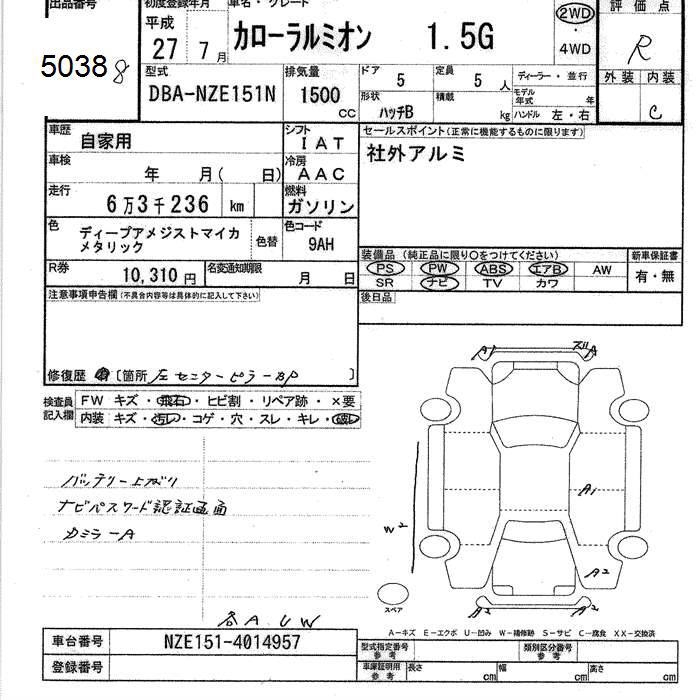 出品番号 初度登録年月 車名・グレード 評価点
50388
平成 27 7月 カローラルミオン 1.5G 2WD 4WD R
型式 DBA-NZE151N 排気量 1500 CC ドア 5 定員 5人 ディーラー・並行 外装 内装
形状 ハッチB 積載 kg モデル年式 年 ハンドル 左・右 C
車歴 自家用 シフト IAT セールスポイント(正常に機能するものに限ります)
車検 年 月( 日) 冷房 AAC 社外アルミ
走行 6万3千236 km 燃料 ガソリン
色 ディープアメジストマイカメタリック 色替 色コード 9AH
装備品 (純正品に限り〇をつけてください) 新車保証書
PS PW ABS エアB AW 有・無
SR ナビ TV カワ
R券 10,310円 名変通知期限 月 日 後日品
注意事項申告欄(不具合内容等は具体的に記入して下さい)
修復歴 有 [箇所 左センターピラーBP ]
検査員記入欄 FW キズ・飛石・ヒビ割・リペア跡・×要
内装 キズ・汚レ・コゲ・穴・スレ・キレ・破レ
A1 ズレA
バッテリー上がり
ナビパスワード認証画面
ドミラーA
A1
W2
A2
スペア A2 A2
各A、U W
A-キズ E-エクボ U-凹み W-補修跡 S-サビ C-腐食 XX-交換済
車台番号 NZE151-4014957 型式指定番号 参考 類別区分番号 参考
登録番号 車庫証明用 参考 長さ cm 幅 cm 高さ cm